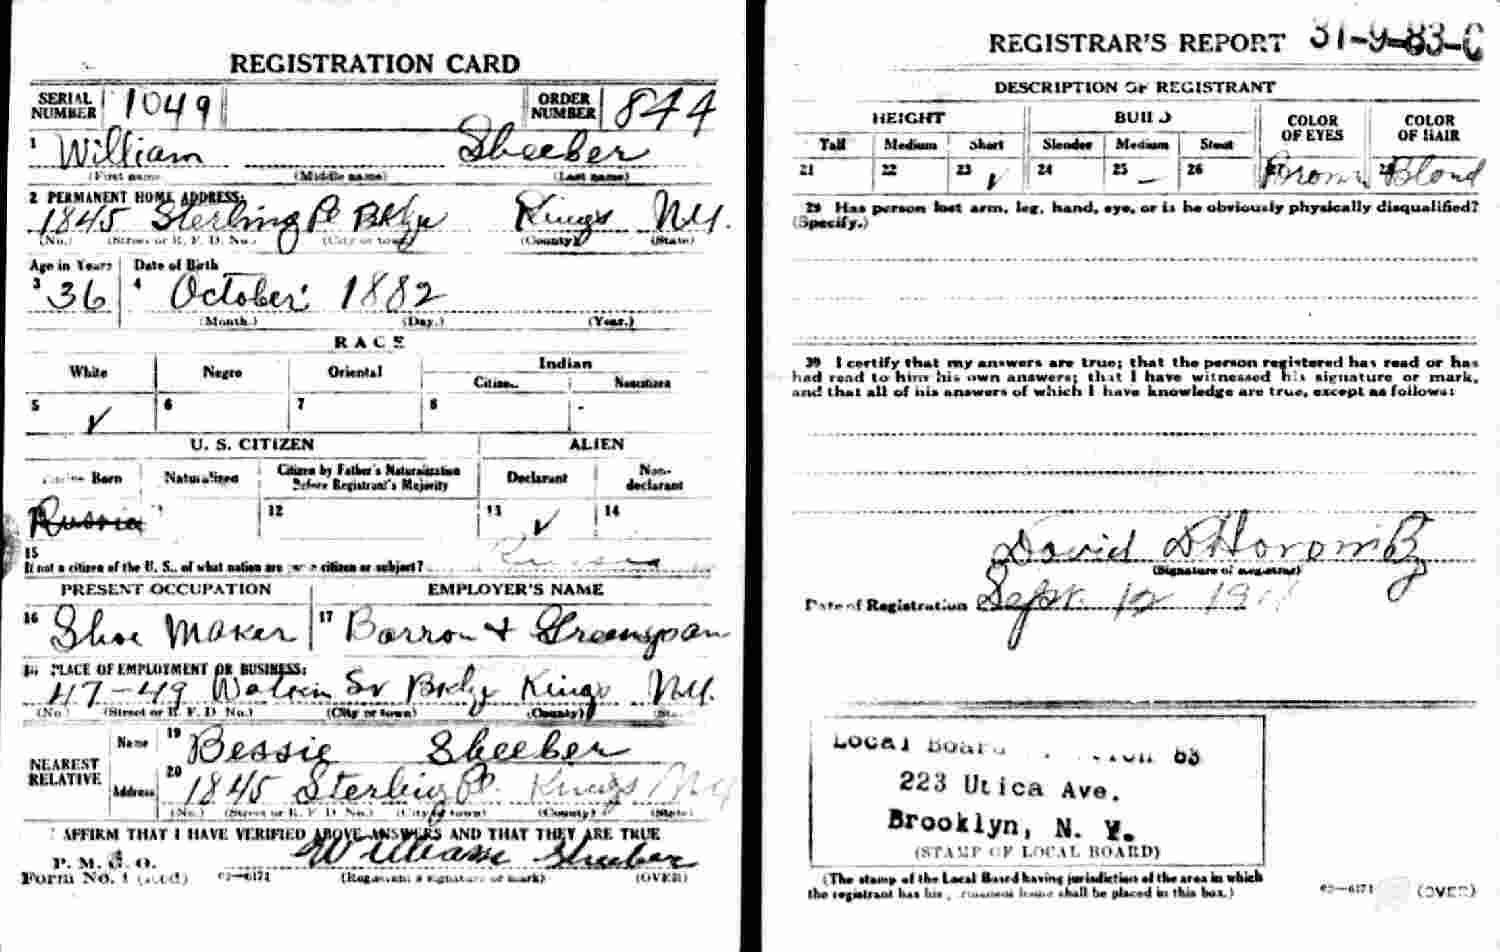 REGISTRATION CARD
SERIAL NUMBER 1049
ORDER NUMBER 844
1 William Sheeber
(First name) (Middle name) (Last name)
2 PERMANENT HOME ADDRESS:
1845 Sterling Pl Bklyn Kings N.Y.
(No.) (Street or R. F. D. No.) (City or town) (County) (State)
Age in Years Date of Birth
3 36 4 October 1882
(Month.) (Day.) (Year.)
RACE
White Negro Oriental Indian
Citizen Noncitizen
5 ✓ 6 7 8 -
U. S. CITIZEN ALIEN
Born Naturalized Citizen by Father's Naturalization Before Registrant's Majority Declarant Non-declarant
Russia 12 13 ✓ 14
15
If not a citizen of the U. S., of what nation are you a citizen or subject? Russia
PRESENT OCCUPATION EMPLOYER'S NAME
16 Shoe Maker 17 Barron & Greenspan
18 PLACE OF EMPLOYMENT OR BUSINESS:
47-49 St Bklyn Kings N.Y.
(No.) (Street or R. F. D. No.) (City or town) (County)
NEAREST RELATIVE
Name 19 Bessie Sheeber
Address 20 1845 Sterling Pl. Kings N.Y
(No.) (Street or R. F. D. No.) (City or town) (County) (State)
I AFFIRM THAT I HAVE VERIFIED ABOVE ANSWERS AND THAT THEY ARE TRUE
P. M. G. O.
Form No. 1 (Red) 03—6171 William Sheeber
(Registrant's signature or mark) (OVER)
REGISTRAR'S REPORT 31-9-83-C
DESCRIPTION OF REGISTRANT
HEIGHT BUILD COLOR OF EYES COLOR OF HAIR
Tall Medium Short Slender Medium Stout
21 22 23 ✓ 24 25 – 26 Brown Blond
29 Has person lost arm, leg, hand, eye, or is he obviously physically disqualified?
(Specify.)
30 I certify that my answers are true; that the person registered has read or has
had read to him his own answers; that I have witnessed his signature or mark,
and that all of his answers of which I have knowledge are true, except as follows:
David D Horowitz
(Signature of registrar)
Date of Registration Sept. 12 191
Local Board 83
223 Utica Ave.
Brooklyn, N. Y.
(STAMP OF LOCAL BOARD)
(The stamp of the Local Board having jurisdiction of the area in which
the registrant has his permanent home shall be placed in this box.)
03—6171 (OVER)